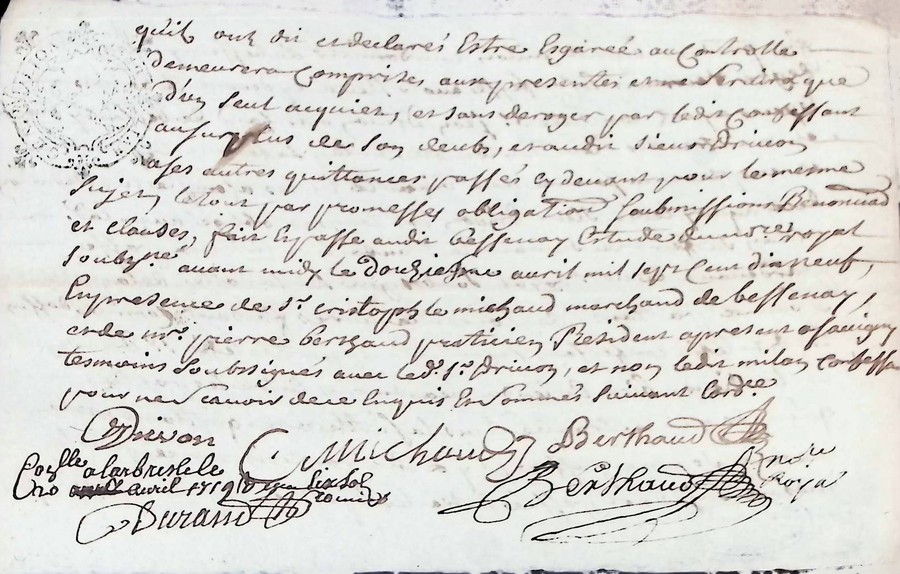 quil ont dit et declarés Estre Esgareé au Controlle
demeurera comprises aux presentes et ne Servira que
D'un Seul acquict, et sans deroger par ledit Confessant
au surplus de son deub, et audit Sieur Drivon
a ses autres quittances passés cy devant pour le mesme
Sujet, le tout par promesses obligation Soubmissions Renonciaõ
et clauses, fait Et passé audit bessenay Estude du nore royal
Soubzné avant midy le Douzieseme avril mil sept Cent dix neuf,
En presence de Sr. cristophle michaud marchand de bessenay,
et de mre. pierre berthaud praticien Résident apresent a savigny
tesmoins Soubsignés avec led. Sr. Drivon, et non ledit milan Confessant
pour ne Scavoir de ce Enquis Et Sommés Suivant Lordce.
Drivon
C Michaud
Berthaud
Collé a larbresle le
20 avril 1719
six sols
Durand
Berthaud
nore
Royal